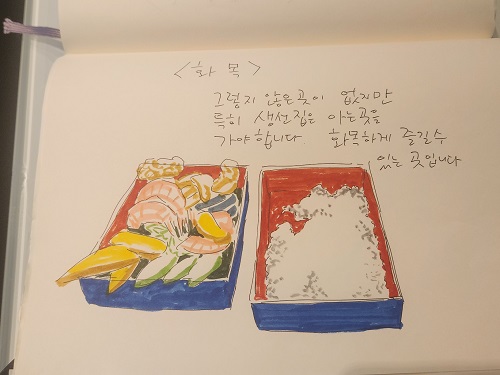 <화 목>
그렇지 않은 곳이 없지만
특히 생선집은 아는곳을
가야 합니다. 화목하게 즐길수
있는 곳입니다